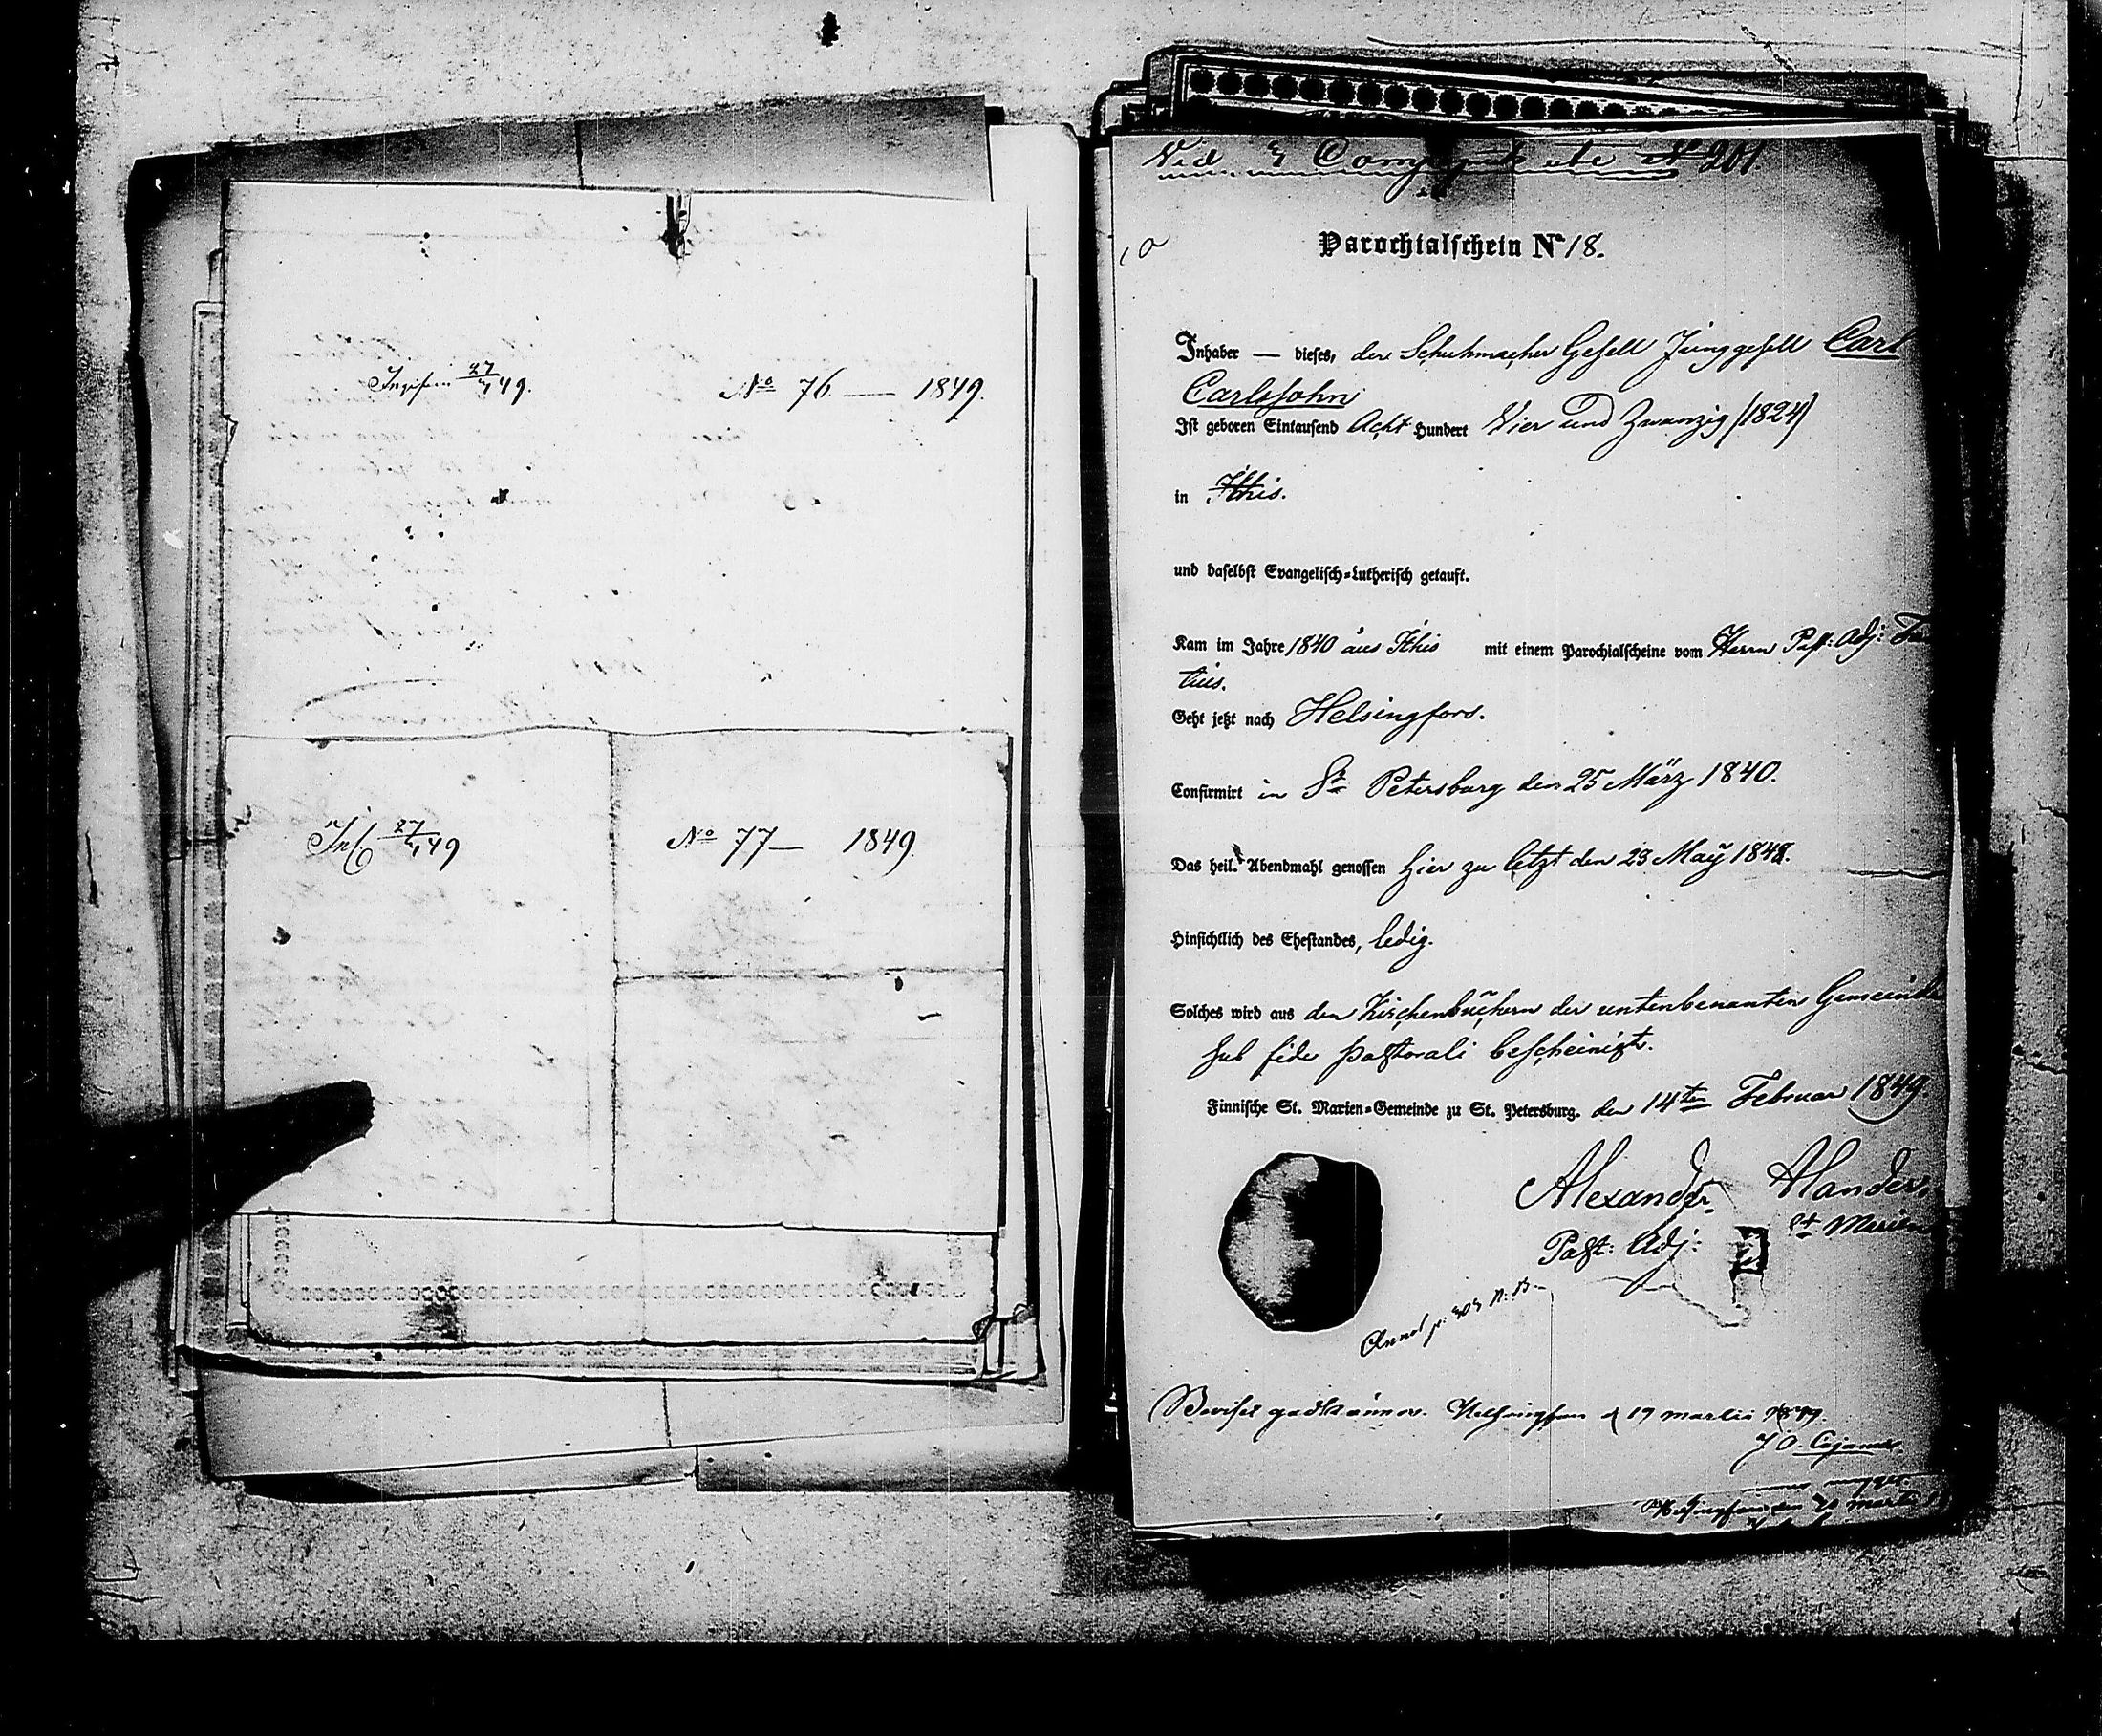 Ingifvin 27/4 49.
No 76 — 1849.
Inl 27/4 49
No 77 — 1849.
No 201.
Parochialschein No 18.
Inhaber — dieses, der Schuhmacher Gesell Junggesell Carl
Carlssohn
Ist geboren Eintausend Acht Hundert Vier und Zwanzig (1824)
in Ithis.
und daselbst Evangelisch-Lutherisch getauft.
Kam im Jahre 1840 aus Ithis mit einem Parochialscheine vom Herrn Past: Adj:
tius.
Geht jetzt nach Helsingfors.
Confirmirt in St Petersburg den 25 März 1840.
Das heil. Abendmahl genossen hier zu letzt den 23 May 1848.
Hinsichtlich des Ehestandes, ledig.
Solches wird aus den Kirchenbüchern der untenbenanten Gemeinde
sub fide pastorali bescheinigt.
Finnische St. Marien-Gemeinde zu St. Petersburg. den 14ten Februar 1849.
Alexander Alander.
Past: Adj: St Marien
Annot p: 303 N: B
Beviset godkännes. Helsingfors d 19 martii 1849.
J O. Cajanus
Helsingfors den 20 martii